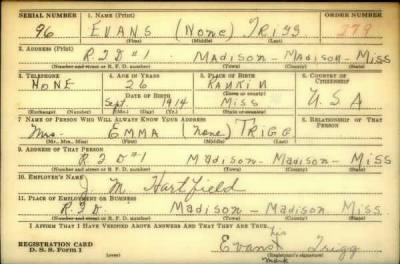 SERIAL NUMBER 1. NAME (Print) ORDER NUMBER
96 EVANS (None) TRIGG
(First) (Middle) (Last)
2. ADDRESS (Print)
R.F.D #1 Madison - Madison - Miss
(Number and street or R. F. D. number) (Town) (County) (State)
3. TELEPHONE 4. AGE IN YEARS 5. PLACE OF BIRTH 6. COUNTRY OF CITIZENSHIP
NONE 26 RANKIN
DATE OF BIRTH (Town or county)
Sept 1914 Miss U.S.A
(Exchange) (Number) (Mo.) (Day) (Yr.) (State or country)
7. NAME OF PERSON WHO WILL ALWAYS KNOW YOUR ADDRESS 8. RELATIONSHIP OF THAT PERSON
Mrs. EMMA (none) TRIGG
(Mr., Mrs., Miss) (First) (Middle) (Last)
9. ADDRESS OF THAT PERSON
R.F.D #1 Madison - Madison - Miss
(Number and street or R. F. D. number) (Town) (County) (State)
10. EMPLOYER'S NAME
J. M. Hartfield
11. PLACE OF EMPLOYMENT OR BUSINESS
R.F.D. Madison - Madison Miss
(Number and street or R. F. D. number) (Town) (County) (State)
I AFFIRM THAT I HAVE VERIFIED ABOVE ANSWERS AND THAT THEY ARE TRUE.
his
REGISTRATION CARD Evans Trigg
D. S. S. Form 1 (over) (Registrant's signature)
mark